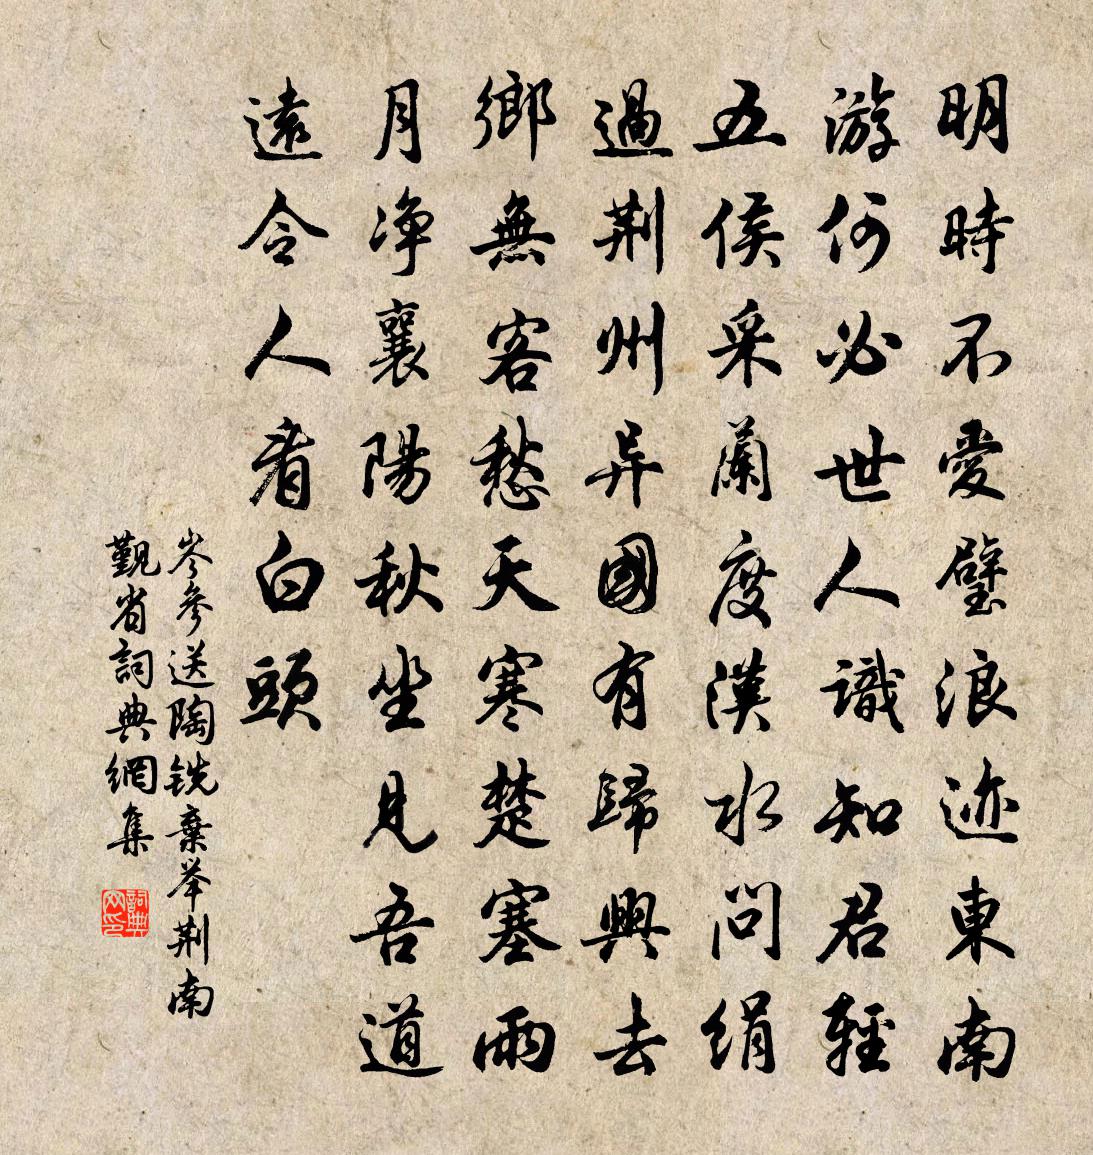 明時不愛璧浪迹東南
游何必世人識知君輕
五侯采蘭度漢水問絹
過荆州异國有歸興去
鄉無客愁天寒楚塞雨
月净襄陽秋坐見吾道
遠令人看白頭
岑參送陶銑棄举荆南
觀省詞典網集
詞典
网印